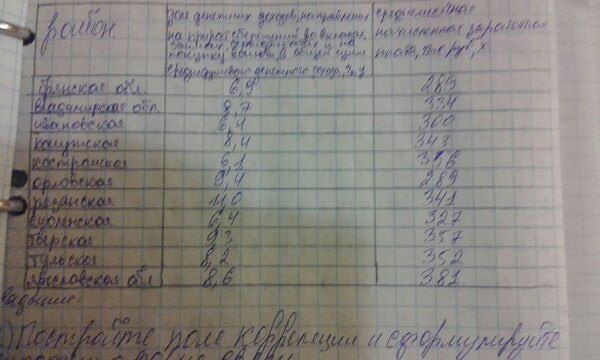 район.
Доля денежных доходов, направленных
на прирост сбережений во вкладах,
займах, сертификатах и на
покупку валюты, в общей сумме
среднедушевого денежного дохода, %, y
среднемесячная
начисленная заработная
плата, тыс. руб, x
Брянская обл. 6,9 289
Владимирская обл. 8,7 334
Ивановская 6,4 300
Калужская 8,4 343
Костромская 6,1 356
Орловская 9,4 289
Рязанская 11,0 341
Смоленская 6,4 327
Тверская 9,3 357
Тульская 8,2 352
Ярославская обл 8,6 381
Задание:
Постройте поле корреляции и сформулируйте